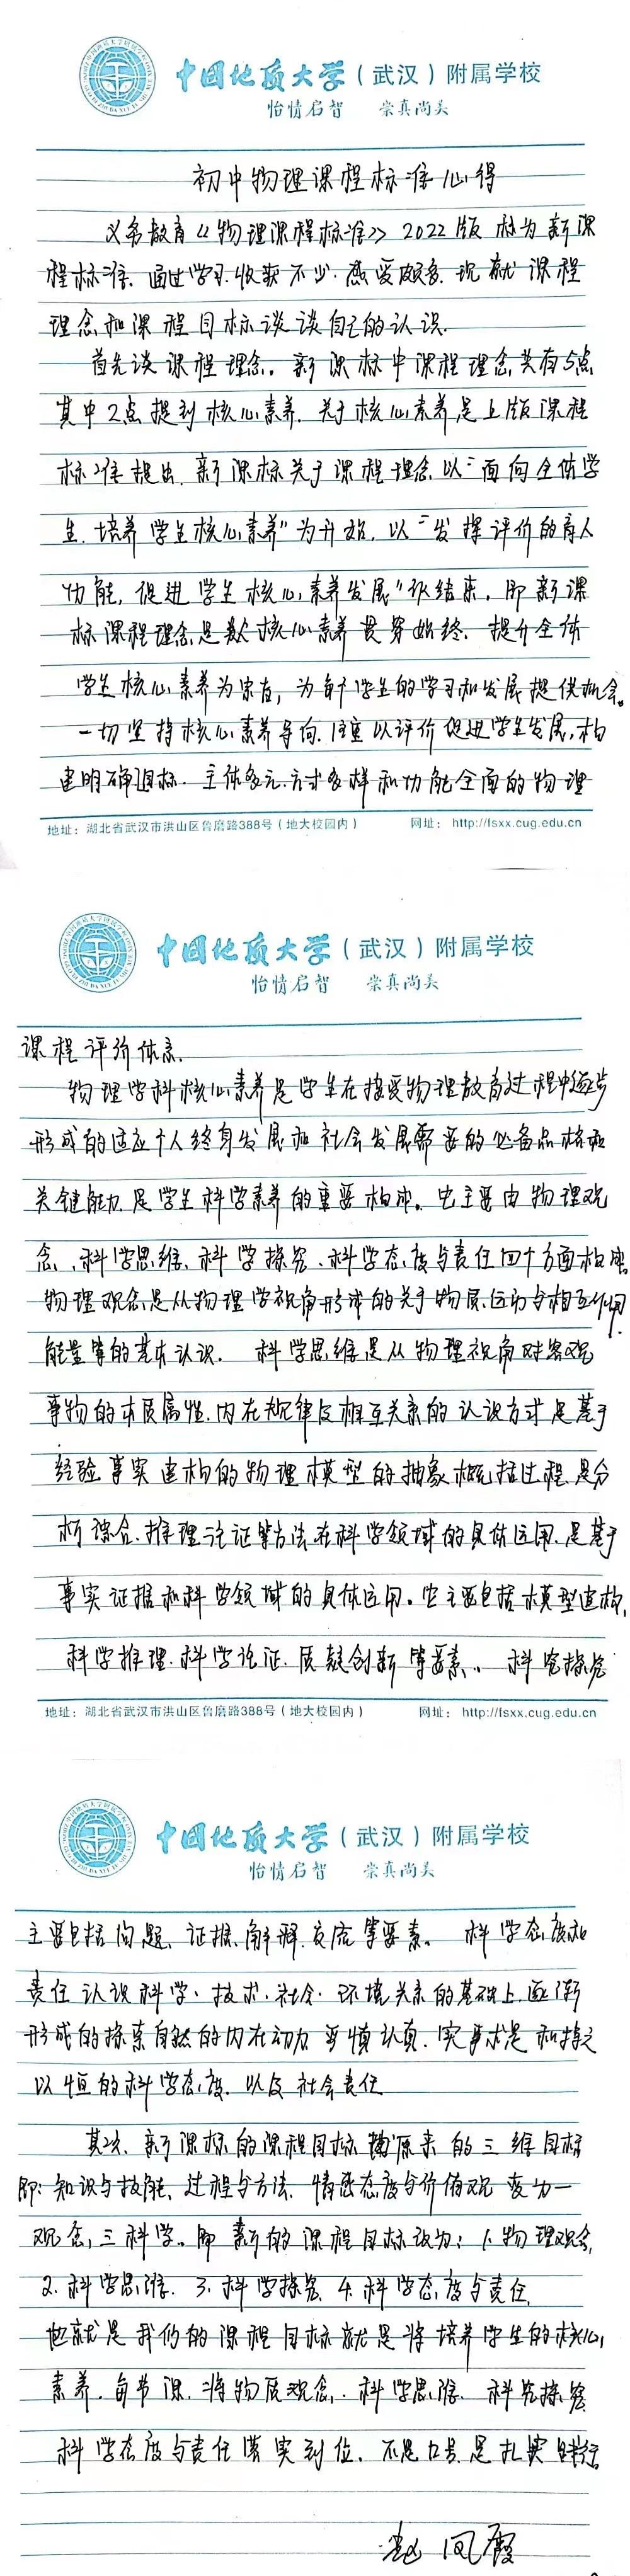 中国地质大学（武汉）附属学校
怡情启智 崇真尚美
初中物理课程标准心得
义务教育《物理课程标准》2022版 称为新课
程标准.通过学习.收获不少.感受颇多.现就课程
理念和课程目标谈谈自己的认识.
首先谈课程理念。新课标中课程理念共有5点
其中2点提到核心素养.关于核心素养是上版课程
标准提出.新课标关于课程理念以“面向全体学
生.培养学生核心素养”为开始,以“发挥评价的育人
功能,促进学生核心素养发展”纵结束。即新课
标课程理念是核心素养贯穿始终.提升全体
学生核心素养为宗旨,为每个学生的学习和发展提供机会。
一切坚持核心素养导向.注重以评价促进学生发展,构
建明确目标.主体多元.方式多样和功能全面的物理
地址：湖北省武汉市洪山区鲁磨路388号（地大校园内） 网址：http://fsxx.cug.edu.cn
中国地质大学（武汉）附属学校
怡情启智 崇真尚美
课程评价体系.
物理学科核心素养是学生在接受物理教育过程中逐步
形成的适应个人终身发展和社会发展需要的必备品格和
关键能力.是学生科学素养的重要构成。它主要由物理观
念、科学思维、科学探究、科学态度与责任四个方面构成
物理观念是从物理学视角形成的关于物质.运动与相互作用.
能量等的基本认识. 科学思维是从物理视角对客观
事物的本质属性.内在规律及相互关系的认识方式是基于
经验事实建构的物理模型的抽象概括过程.是分
析综合.推理论证等方法在科学领域的具体运用.是基于
事实证据和科学领域的具体运用。它主要包括模型建构,
科学推理.科学论证.质疑创新等要素。科究探究
地址：湖北省武汉市洪山区鲁磨路388号（地大校园内） 网址：http://fsxx.cug.edu.cn
中国地质大学（武汉）附属学校
怡情启智 崇真尚美
主要包括问题、证据、解释.交流等要素。科学态度和
责任认识科学.技术.社会.环境关系的基础上.逐渐
形成的探索自然的内在动力.严慎认真.实事求是和持之
以恒的科学态度.以及社会责任
其次.新课标的课程目标原来的三维目标
即:知识与技能、过程与方法.情感态度与价值观变为一
观念,三科学。即新的课程目标设为:1.物理观念,
2.科学思维. 3.科学探究 4.科学态度与责任.
也就是我们的课程目标就是将培养学生的核心
素养.每节课.将物质观念.科学思维.科究探究
科学态度与责任落实到位.不是口号.是扎实践行
赵凤霞